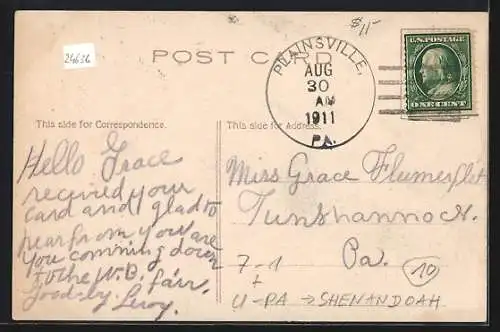 $11-
24636
POST CARD
PLAINSVILLE,
AUG
30
AM
1911
PA.
U.S. POSTAGE
ONE CENT
This side for Correspondence.
This side for Address.
Hello Grace
received your
card and glad to
hear from you are
you comming down
to the W.B. fair.
good-by. Leroy.
Miss Grace Flumerfelt
Tunkhannock.
Pa.
7-1
+
10
U-PA → SHENANDOAH